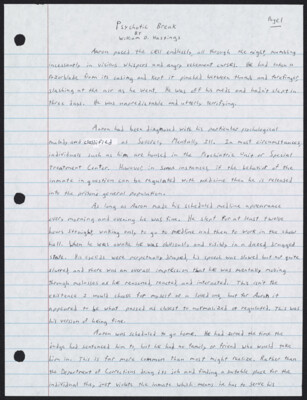 Page 1
Psychotic Break
By
William D. Hastings
Aaron paced the cell endlessly, all through the night mumbling
incessantly in vicious whispers and angry vehement curses. He had taken a
razorblade from its casing and kept it pinched between thumb and forefinger
slashing at the air as he went. He was off his meds and hadn't slept in
three days. He was unpredictable and utterly terrifying.
Aaron had been diagnosed with his particular psychological
malady and classified as Seriously Mentally Ill. In most circumstances
individuals such as him are housed in the Psychiatric Ward or Special
Treatment Center. However in some instances if the behavior of the
inmate in question can be regulated with medicine then he is released
into the prisons general population.
As long as Aaron made his scheduled medicine appearance
every morning and evening he was fine. He slept for at least twelve
hours straight waking only to go to medicine and then to work in the chow
hall. When he was awake he was obliviously and blissfully in a dazed drugged
state. His eyelids were perpetually drooped, his speech was slow but not quite
slurred and there was an overall impression that he was mentally moving
through molasses as he conversed reacted and interacted. This isn't the
existence I would choose for myself or a loved one, but for Aaron it
appeared to be what passed as closest to normal when so regulated. This was
his version of being fine.
Aaron was scheduled to go home. He had served the time the
judge had sentenced him to, but he had no family or friend who would take
him in. This is far more common than most might realize. Rather than
the Department of Corrections doing its job and finding a suitable place for the
individual they just violate the inmate which means he has to serve his